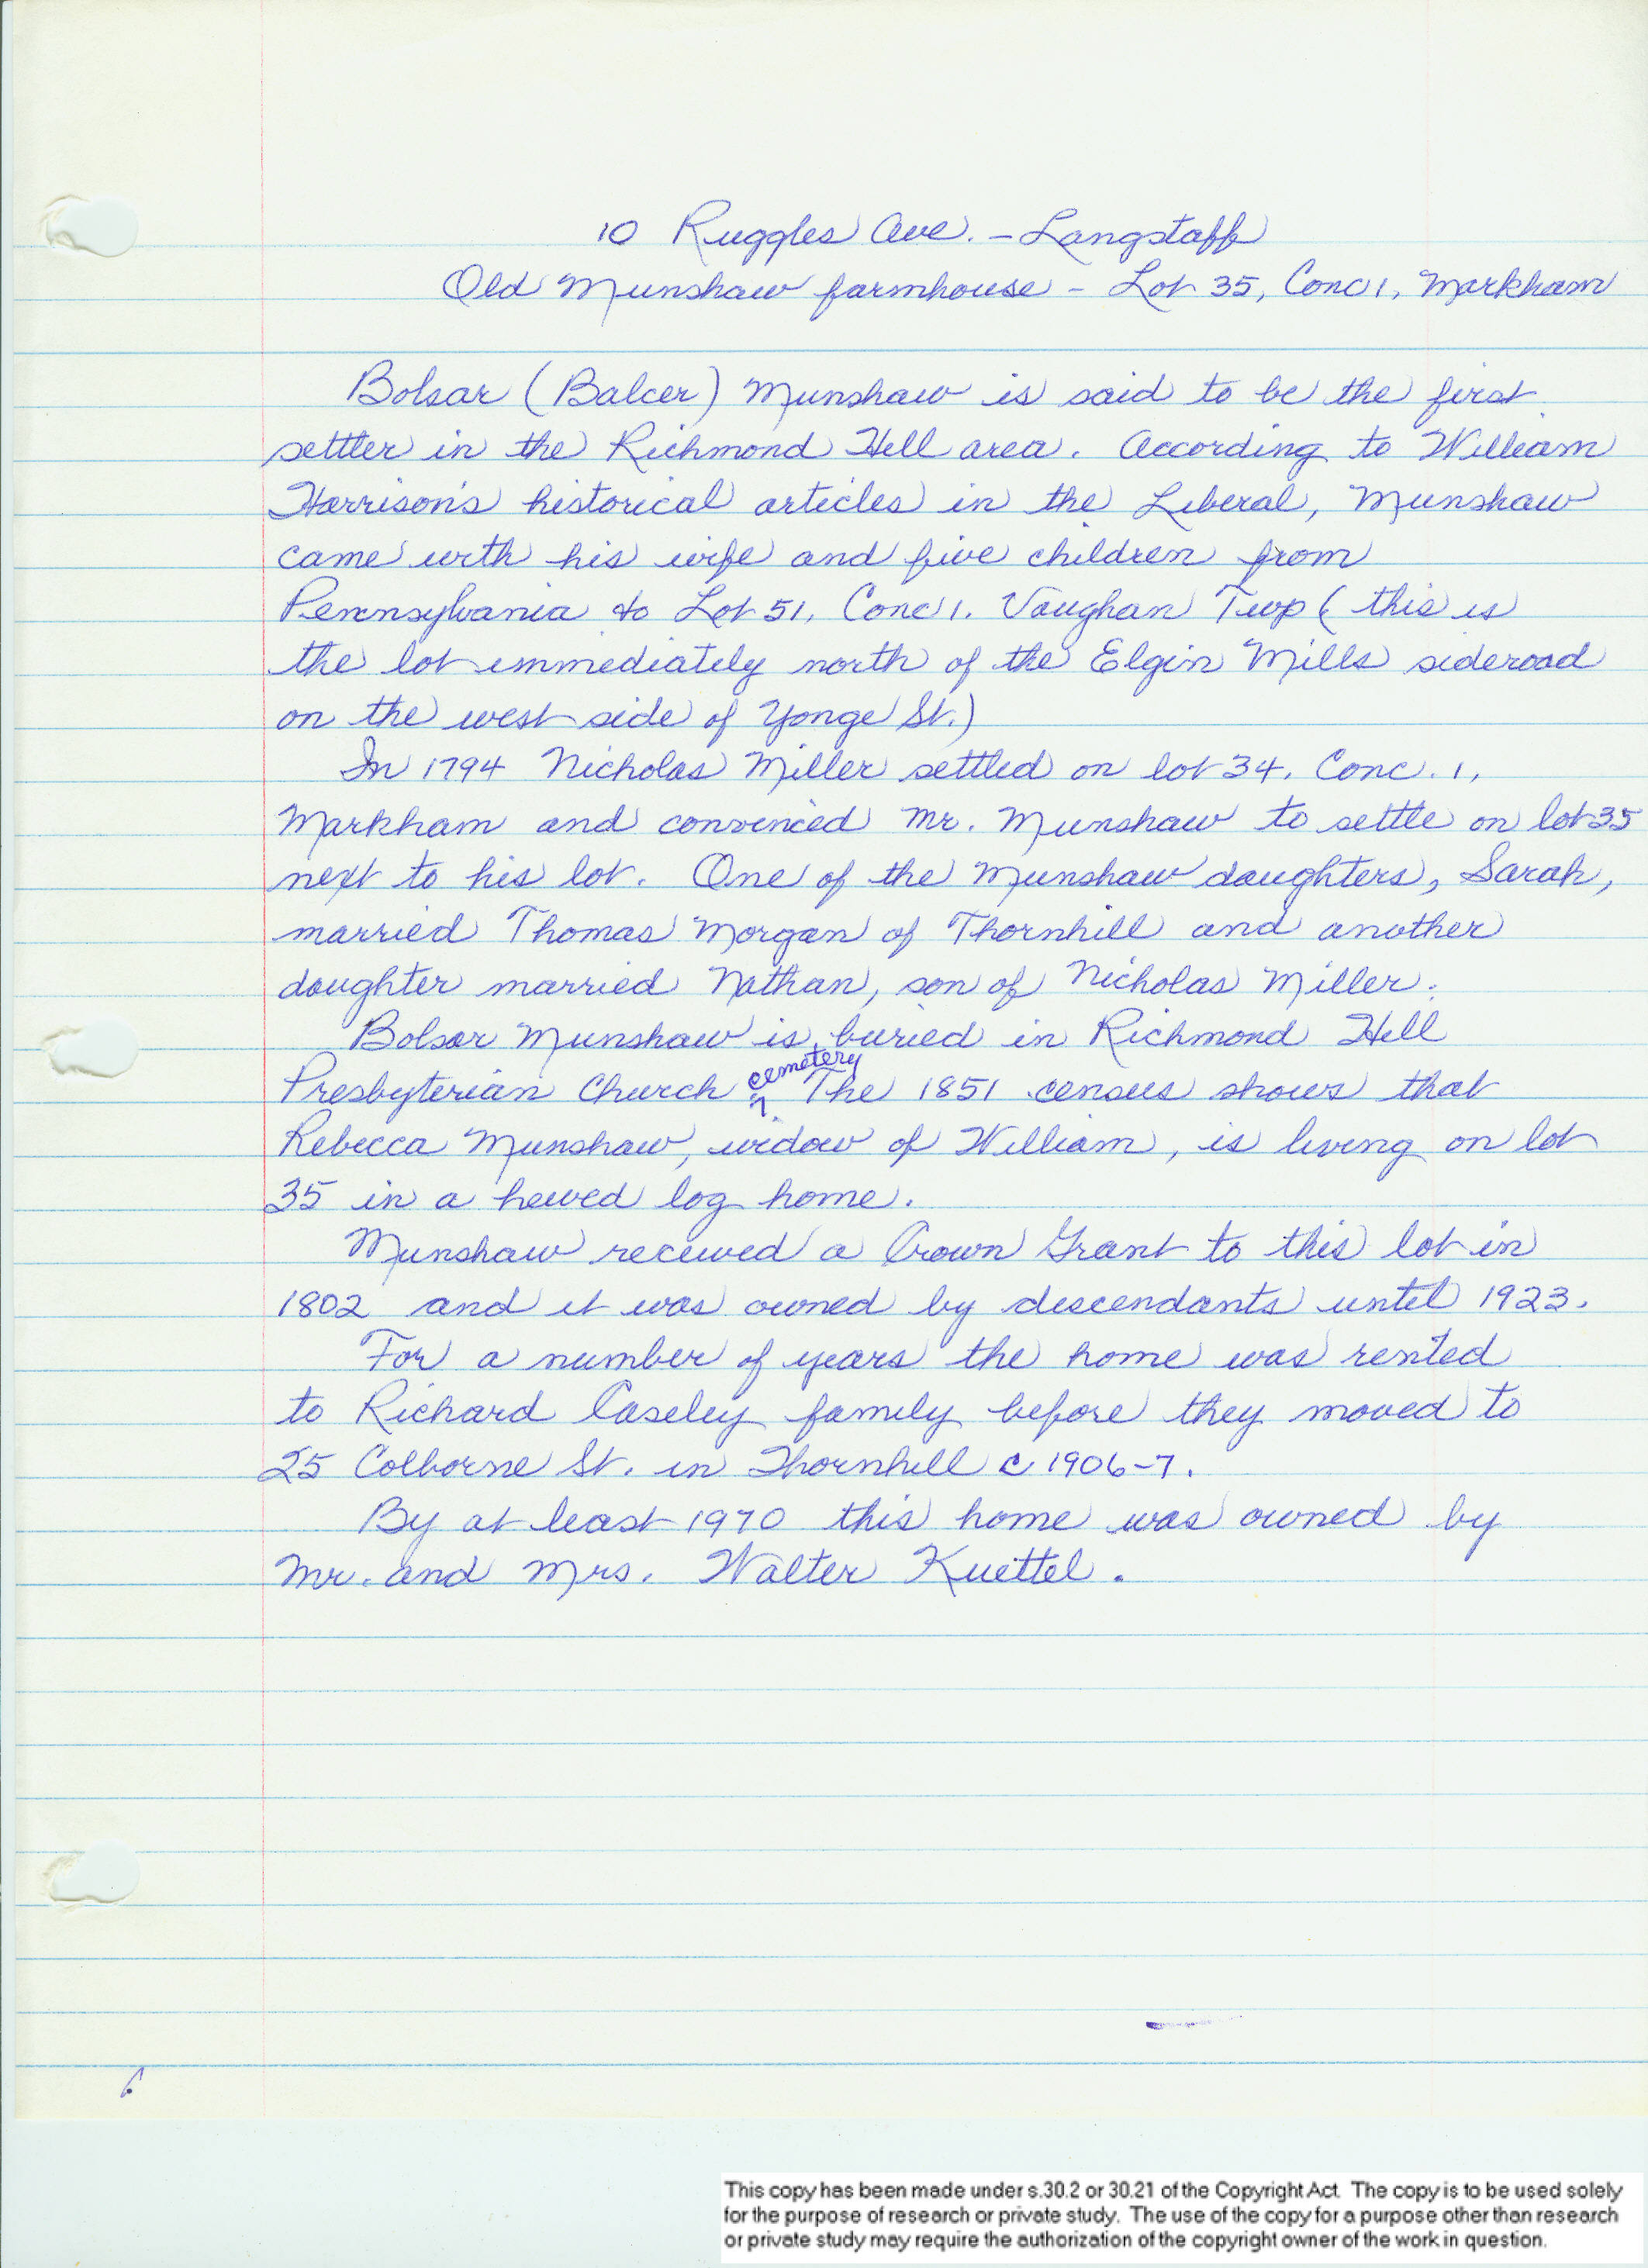 10 Ruggles Ave. - Langstaff
Old Munshaw farmhouse - Lot 35, Conc 1, Markham
Bolsar (Balcer) Munshaw is said to be the first
settler in the Richmond Hill area. According to William
Harrison's historical articles in the Liberal, Munshaw
came with his wife and five children from
Pennsylvania to Lot 51, Conc 1. Vaughan Twp (this is
the lot immediately north of the Elgin Mills sideroad
on the west side of Yonge St.)
In 1794 Nicholas Miller settled on lot 34, Conc. 1,
Markham and convinced Mr. Munshaw to settle on lot 35
next to his lot. One of the Munshaw daughters, Sarah,
married Thomas Morgan of Thornhill and another
daughter married Nathan, son of Nicholas Miller.
Bolsar Munshaw is buried in Richmond Hill
Presbyterian Church cemetery. The 1851 census shows that
Rebecca Munshaw, widow of William, is living on lot
35 in a hewed log home.
Munshaw received a Crown Grant to this lot in
1802 and it was owned by descendants until 1923.
For a number of years the home was rented
to Richard Caseley family before they moved to
25 Colborne St. in Thornhill c 1906-7.
By at least 1970 this home was owned by
Mr. and Mrs. Walter Kuettel.
This copy has been made under s.30.2 or 30.21 of the Copyright Act. The copy is to be used solely
for the purpose of research or private study. The use of the copy for a purpose other than research
or private study may require the authorization of the copyright owner of the work in question.